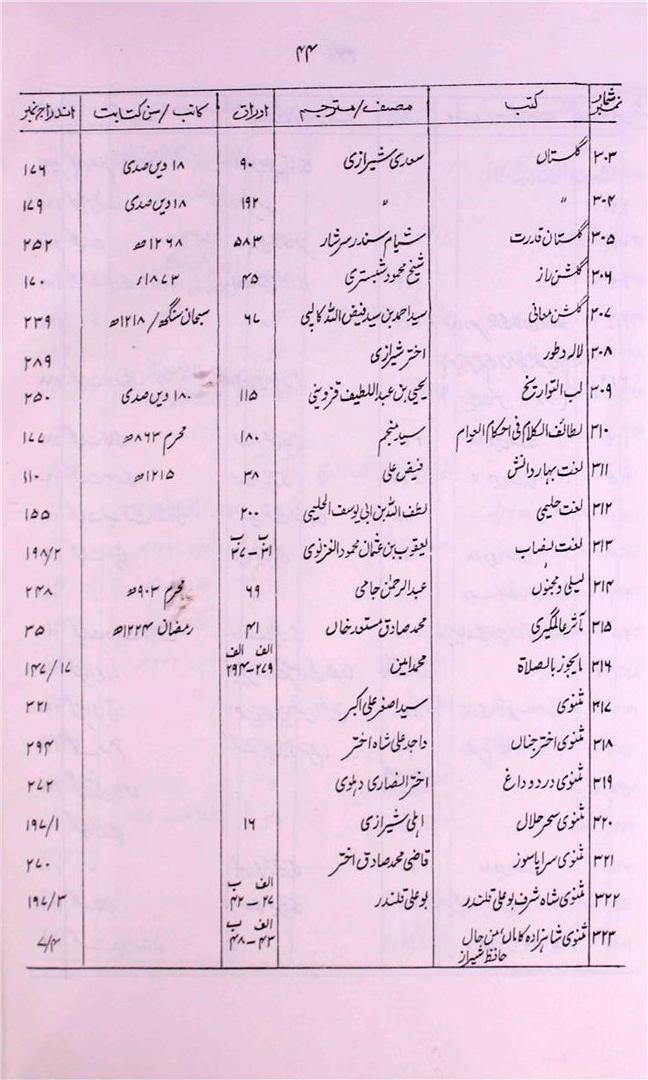 ۴۴
نمبر شمار کتب مصنف/مترجم اوراق کاتب/سن کتابت اندراج نمبر
۳۰۳ گلستاں سعدی شیرازی ۹۰ ۱۸ ویں صدی ۱۷۶
۳۰۴ " " ۱۹۲ ۱۸ ویں صدی ۱۷۹
۳۰۵ گلستان قدرت شیام سندر سرشار ۵۸۳ ۱۲۶۸ھ ۲۵۲
۳۰۶ گلشن راز شیخ محمود شبستری ۴۵ ۱۸۷۳ء ۱۷۰
۳۰۷ گلشن معانی سید احمد بن سید فیض اللہ کالپی ۶۷ سبحان سنگھ/ ۱۲۱۸ھ ۲۳۹
۳۰۸ لالہ و طور اختر شیرازی ۲۸۹
۳۰۹ لب التواریخ یحییٰ بن عبد اللطیف قزوینی ۱۱۵ ۱۸۰ ویں صدی ۲۵۰
۳۱۰ لطائف الکلام فی احکام العوام سید منجم ۱۸۰ محرم ۸۶۳ھ ۱۷۷
۳۱۱ لغت بہار دانش فیض علی ۳۸ ۱۲۱۵ھ ۱۱۰
۳۱۲ لغت حلیمی لطف اللہ بن ابی یوسف الحلیمی ۲۰۰ ۱۵۵
۳۱۳ لغت نصاب یعقوب بن عثمان محمود الغزنوی ۲۱ ب – ۲۷ ب ۱۹۸/۲
۳۱۴ لیلیٰ و مجنوں عبدالرحمٰن جامی ۶۹ محرم ۹۰۳ھ ۲۴۸
۳۱۵ مآثر عالمگیری محمد صادق مستعد خاں ۴۱ رمضان ۱۲۲۴ھ ۳۵
۳۱۶ مایجوز بالصلاۃ محمد امین ۲۷۹ الف – ۲۹۴ الف ۱۴۷/۱۷
۳۱۷ مثنوی سید اصغر علی اکبر ۲۲۱
۳۱۸ مثنوی اختر جناں واجد علی شاہ اختر ۲۹۴
۳۱۹ مثنوی درد و داغ اختر انصاری دہلوی ۲۷۲
۳۲۰ مثنوی سحر حلال اہلی شیرازی ۱۶ ۱۹۷/۱
۳۲۱ مثنوی سراپا سوز قاضی محمد صادق اختر ۲۷۰
۳۲۲ مثنوی شاہ شرف بو علی قلندر بو علی قلندر ۲۷ الف – ۴۲ ب ۱۹۷/۳
۳۲۳ مثنوی شاہزادہ کاماں من حال ۴۳ الف – ۴۸ ب ۷/۴
حافظ شیراز